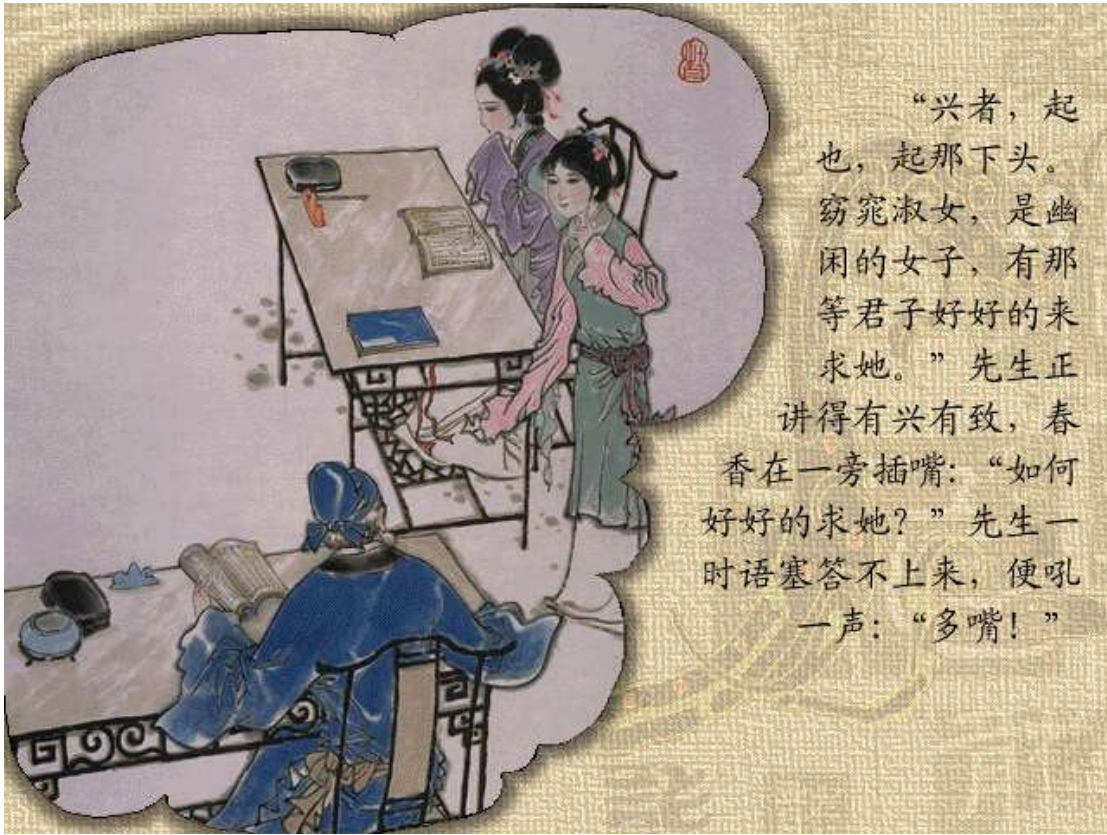 “兴者，起
也，起那下头。
窈窕淑女，是幽
闲的女子，有那
等君子好好的来
求她。”先生正
讲得有兴有致，春
香在一旁插嘴：“如何
好好的求她？”先生一
时语塞答不上来，便吼
一声：“多嘴！”